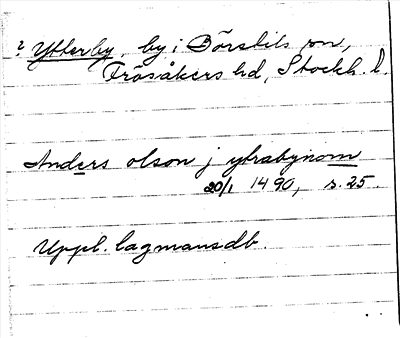 ? Ytterby, by i Börstils sn,
Frösåkers hd, Stockh. l.
Anders olson j ytrabynom
20/1 1490, s. 25.
Uppl. lagmansdb.